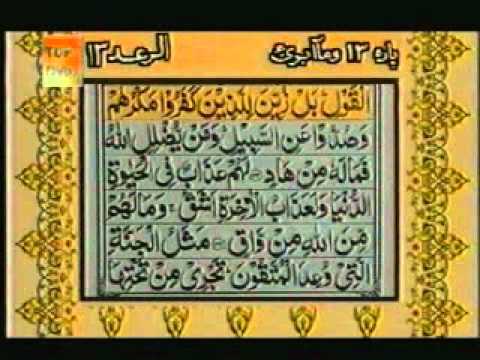 پارہ ۱۳ وما ابرئ
الرعد ۱۳
الْقَوْلِ بَلْ زُيِّنَ لِلَّذِيْنَ كَفَرُوْا مَكْرُهُمْ
وَصُدُّوْا عَنِ السَّبِيْلِ وَمَنْ يُّضْلِلِ اللّٰهُ
فَمَا لَهٗ مِنْ هَادٍ لَهُمْ عَذَابٌ فِى الْحَيٰوةِ
الدُّنْيَا وَلَعَذَابُ الْاٰخِرَةِ اَشَقُّ وَمَا لَهُمْ
مِّنَ اللّٰهِ مِنْ وَّاقٍ مَثَلُ الْجَنَّةِ
الَّتِىْ وُعِدَ الْمُتَّقُوْنَ تَجْرِىْ مِنْ تَحْتِهَا